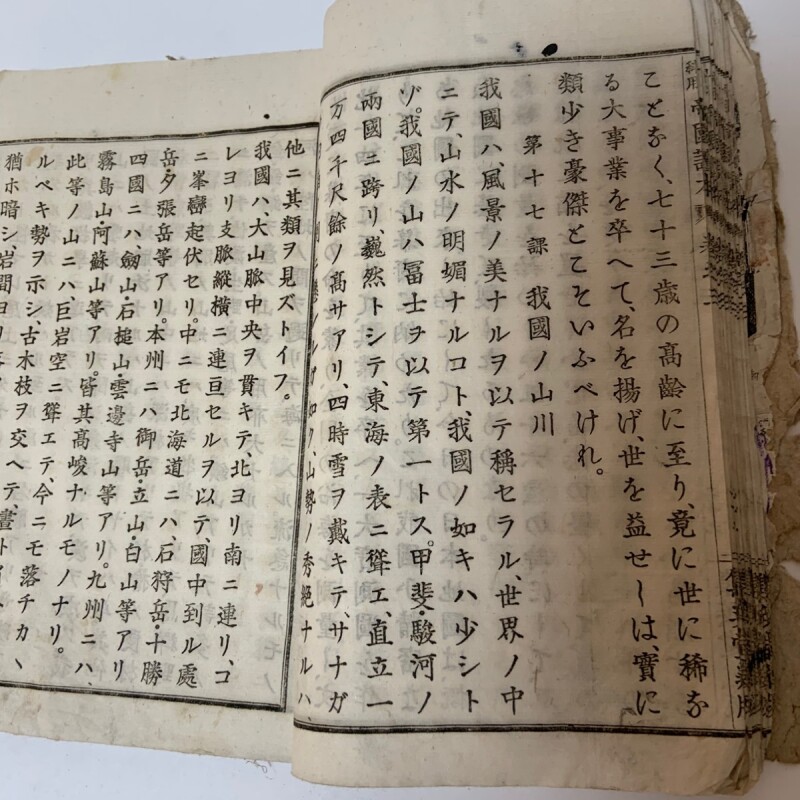 帝國讀本
ことなく、七十三歳の高齡に至り、竟に世に稀な
る大事業を卒へて、名を揚げ、世を益せしは、實に
類少き豪傑とこそいふべけれ。
第十七課 我國ノ山川
我國ハ、風景ノ美ナルヲ以テ稱セラル、世界ノ中
ニテ、山水ノ明媚ナルコト、我國ノ如キハ少シト
ゾ。我國ノ山ハ冨士ヲ以テ第一トス。甲斐・駿河ノ
兩國ニ跨リ、巍然トシテ、東海ノ表ニ聳エ、直立一
万四千尺餘ノ髙サアリ、四時雪ヲ戴キテ、サナガ
如ク、山勢ノ秀絕ナルハ、
他ニ其類ヲ見ズトイフ。
我國ハ、大山脈中央ヲ貫キテ、北ヨリ南ニ連リ、コ
レヨリ支脈縱橫ニ連亘セルヲ以テ、國中到ル處
ニ峯巒起伏セリ。中ニモ北海道ニハ、石狩岳・十勝
岳・夕張岳等アリ。本州ニハ御岳・立山・白山等アリ
四國ニハ、劔山・石槌山・雲邊寺山等アリ。九州ニハ、
霧島山・阿蘇山等アリ。皆其高峻ナルモノナリ。
此等ノ山ニハ、巨岩空ニ聳エテ、今ニモ落チカヽ
ルベキ勢ヲ示シ、古木枝ヲ交ヘテ、晝
猶ホ暗シ、岩間ヨリ